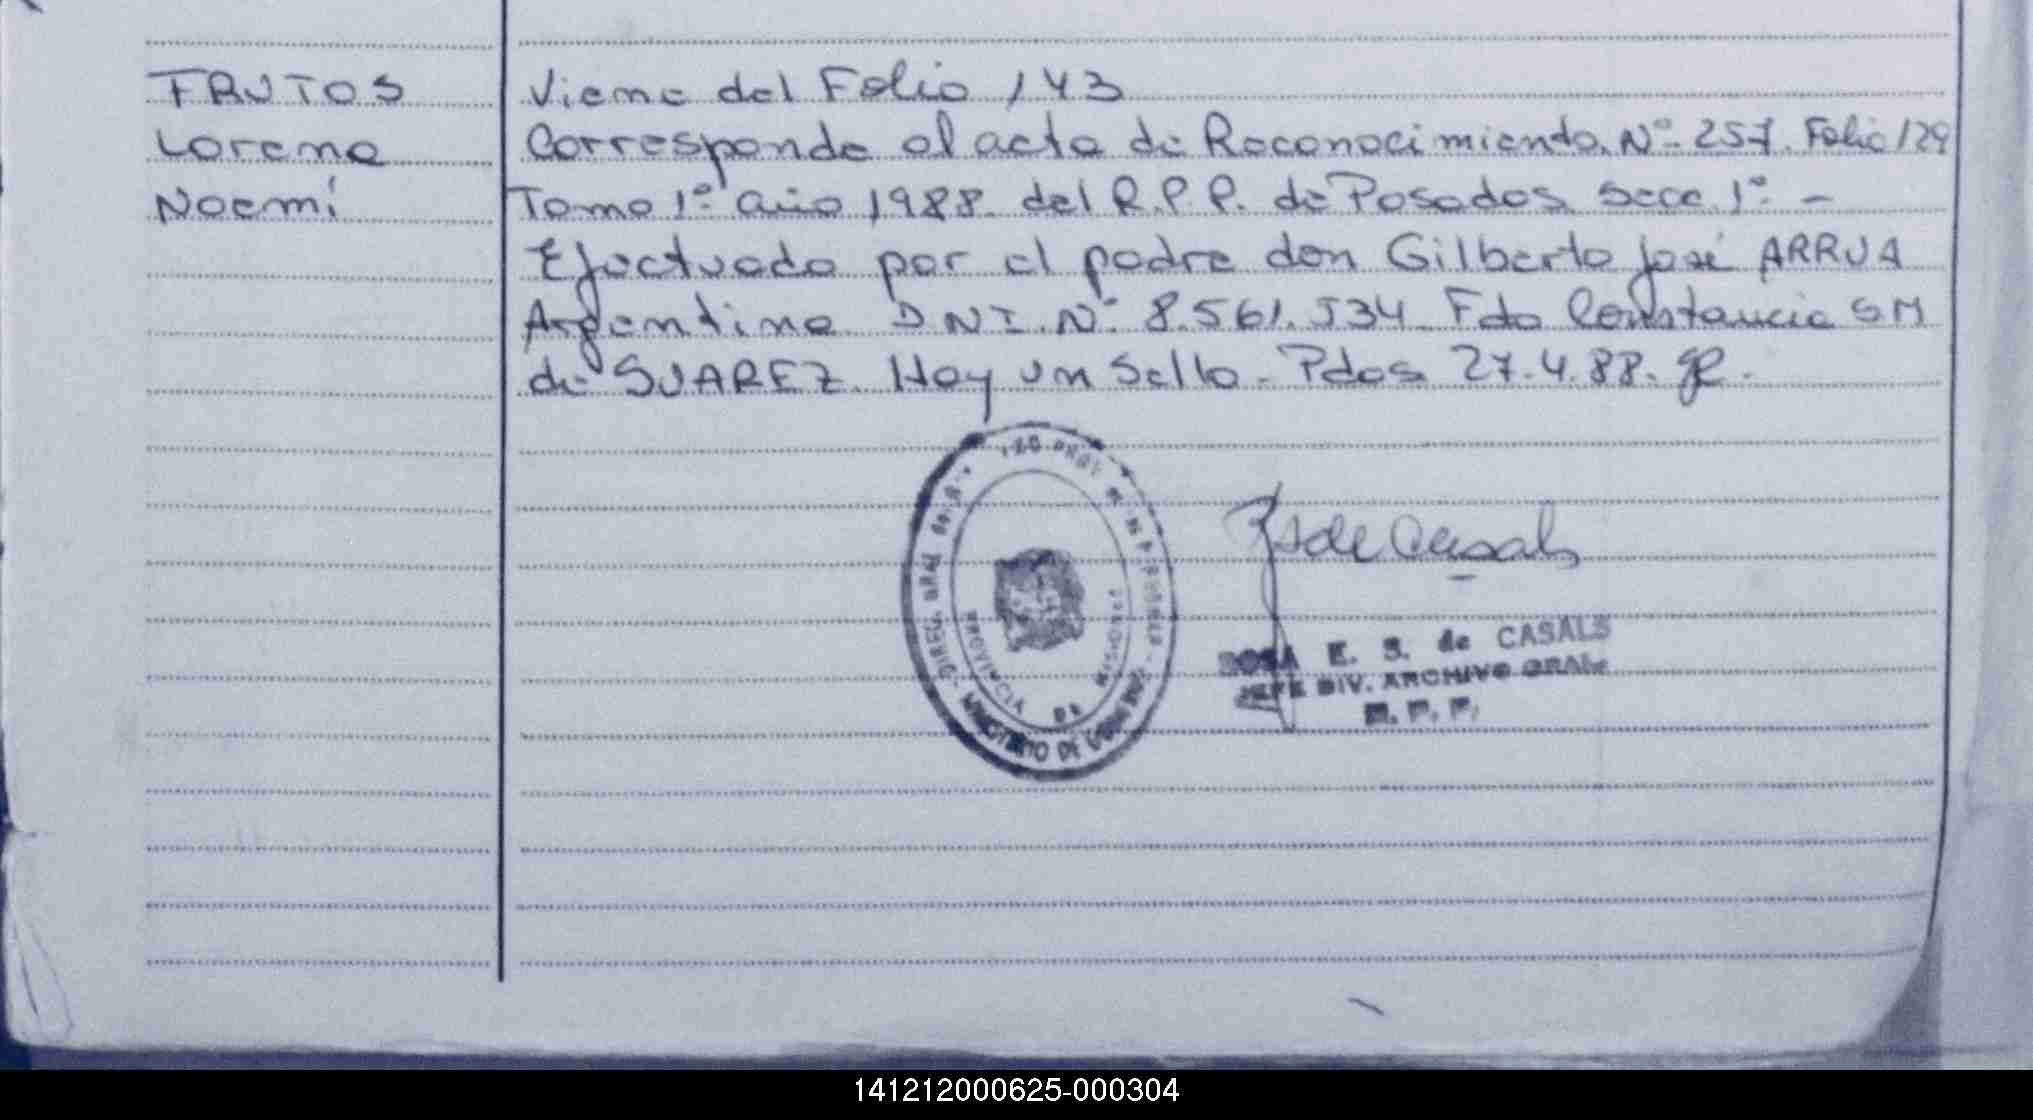 FRUTOS
Lorena
Noemí
Viene del Folio 143
Corresponde al acta de Reconocimiento Nº 257. Folio 129
Tomo 1º año 1988. del R.P.P. de Posadas secc 1º. -
Efectuado por el padre don Gilberto José ARRUA
Argentino DNI. Nº 8.561.534. Fdo Constancia S M
de SUAREZ. Hay un Sello. Pdas 27.4.88.
DIREC. GRAL. DEL
PROVINCIA DE MISIONES
MINISTERIO DE GOBIERNO
R S de Casals
ROSA E. S. de CASALS
JEFE DIV. ARCHIVO GRAL.
R. P. P.
141212000625-000304